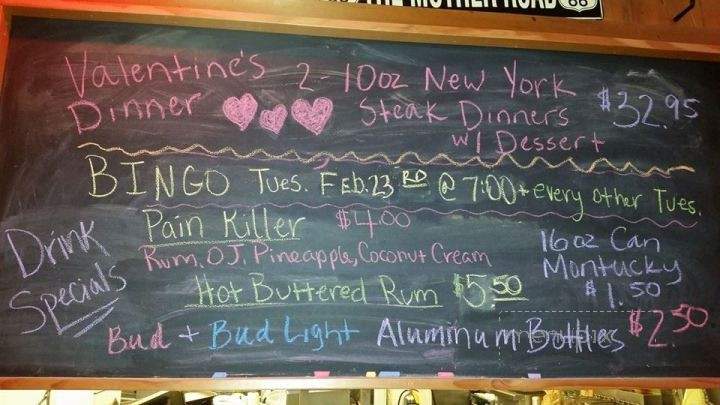 THE MOTHER ROAD 66
Valentine's 2 10oz New York $32.95
Dinner Steak Dinners
w/ Dessert
BINGO Tues. Feb. 23RD @ 7:00 + every other Tues.
Drink Specials
Pain Killer $4.00
Rum, O.J. Pineapple, Coconut Cream
Hot Buttered Rum $5.50
16oz Can
Montucky
$1.50
Bud + Bud Light Aluminum Bottles $2.50